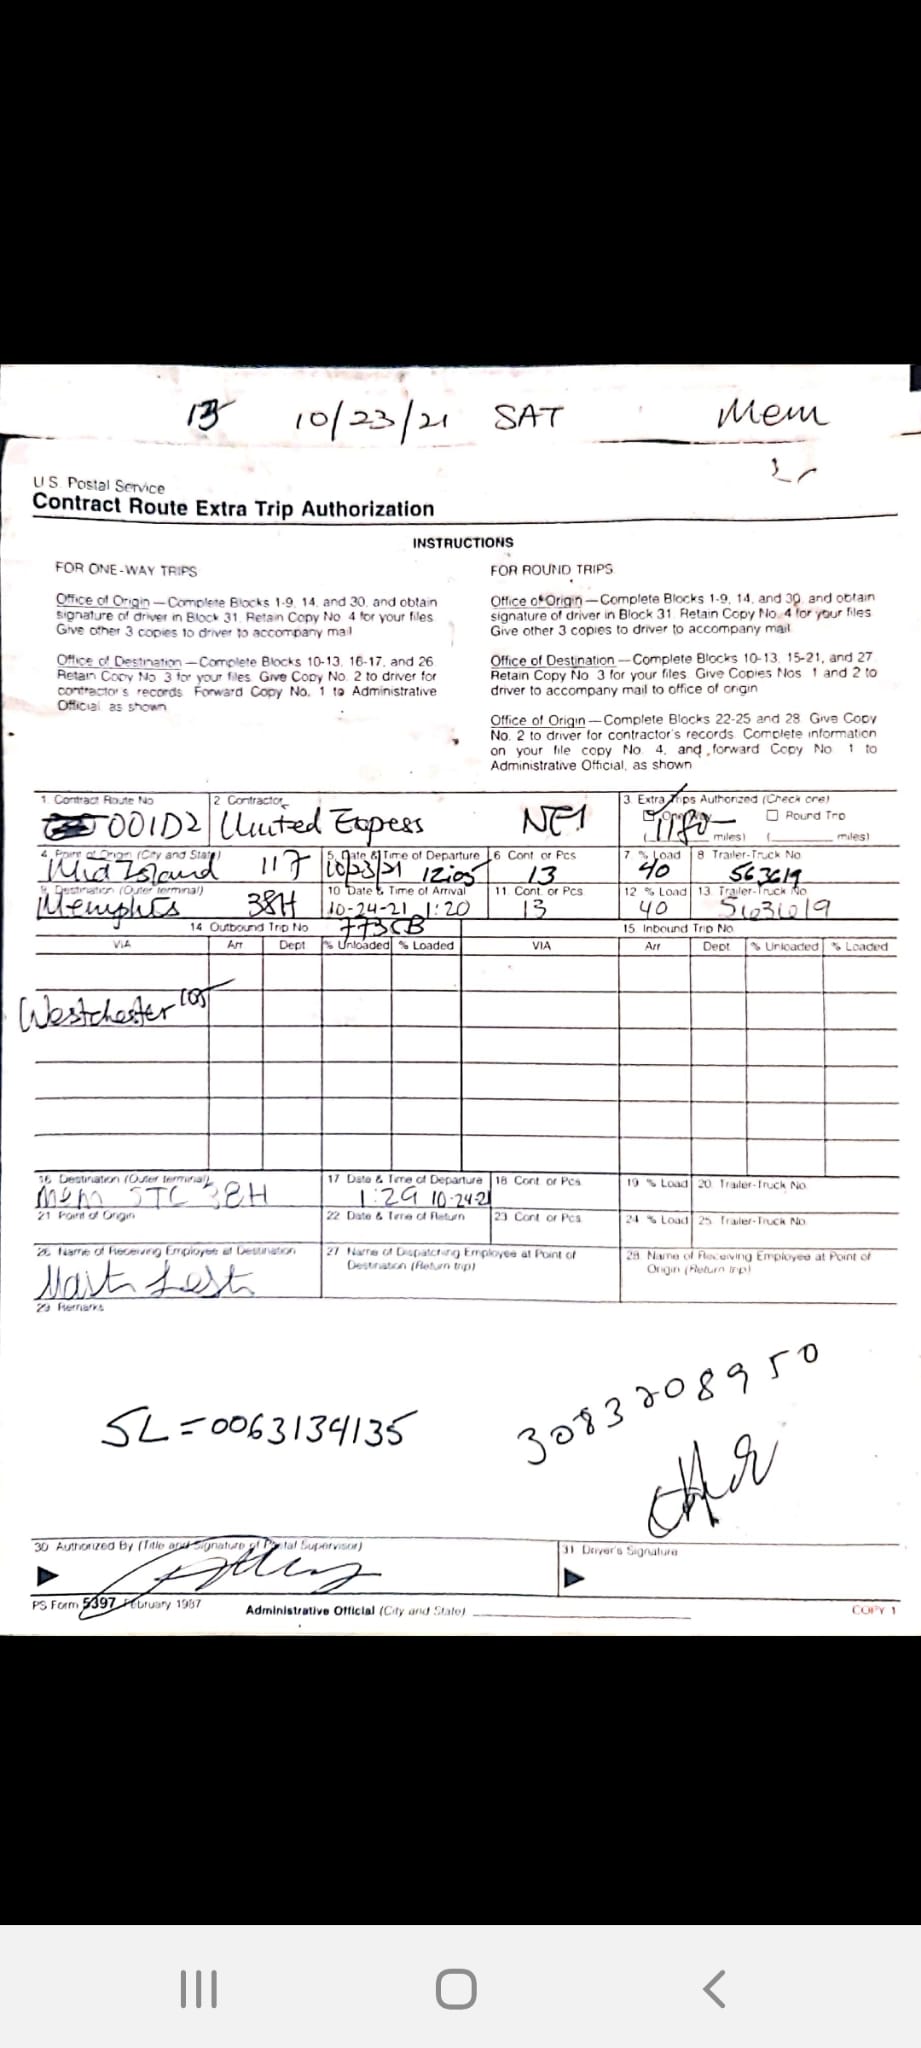 13 10/23/21 SAT Mem
U.S. Postal Service
Contract Route Extra Trip Authorization
INSTRUCTIONS
FOR ONE-WAY TRIPS
Office of Origin — Complete Blocks 1-9, 14, and 30, and obtain
signature of driver in Block 31. Retain Copy No. 4 for your files.
Give other 3 copies to driver to accompany mail
Office of Destination — Complete Blocks 10-13, 16-17, and 26.
Retain Copy No. 3 for your files. Give Copy No. 2 to driver for
contractor's records. Forward Copy No. 1 to Administrative
Official, as shown
FOR ROUND TRIPS
Office of Origin — Complete Blocks 1-9, 14, and 30, and obtain
signature of driver in Block 31. Retain Copy No. 4 for your files.
Give other 3 copies to driver to accompany mail.
Office of Destination — Complete Blocks 10-13, 15-21, and 27.
Retain Copy No. 3 for your files. Give Copies Nos. 1 and 2 to
driver to accompany mail to office of origin
Office of Origin — Complete Blocks 22-25 and 28. Give Copy
No. 2 to driver for contractor's records. Complete information
on your file copy No. 4, and forward Copy No. 1 to
Administrative Official, as shown
1. Contract Route No. 2 Contractor 3. Extra Trips Authorized (Check one)
One-Way Round Trip
001D2 United Express NE1 1180
( miles) ( miles)
4. Point of Origin (City and State) 5. Date & Time of Departure 6 Cont. or Pcs 7. % Load 8 Trailer-Truck No.
Mid Island 117 10/23/21 12:05 13 40 563619
9. Destination (Outer terminal) 10 Date & Time of Arrival 11 Cont. or Pcs. 12 % Load 13 Trailer-Truck No.
Memphis 38H 10-24-21 1:20 13 40 563619
14 Outbound Trip No. 773CB 15. Inbound Trip No.
VIA Arr Dept % Unloaded % Loaded VIA Arr Dept. % Unloaded % Loaded
Westchester 105
16 Destination (Outer terminal) 17 Date & Time of Departure 18 Cont. or Pcs. 19 % Load 20. Trailer-Truck No.
Mem STC 38H 1:29 10-24-21
21 Point of Origin 22 Date & Time of Return 23 Cont or Pcs 24 % Load 25 Trailer-Truck No.
26 Name of Receiving Employee at Destination 27 Name of Dispatching Employee at Point of
Destination (Return trip)
28 Name of Receiving Employee at Point of
Origin (Return trip)
29 Remarks
3083208950
SL=0063134135
30 Authorized By (Title and Signature of Postal Supervisor) 31 Driver's Signature
PS Form 5397, February 1987 Administrative Official (City and State) COPY 1